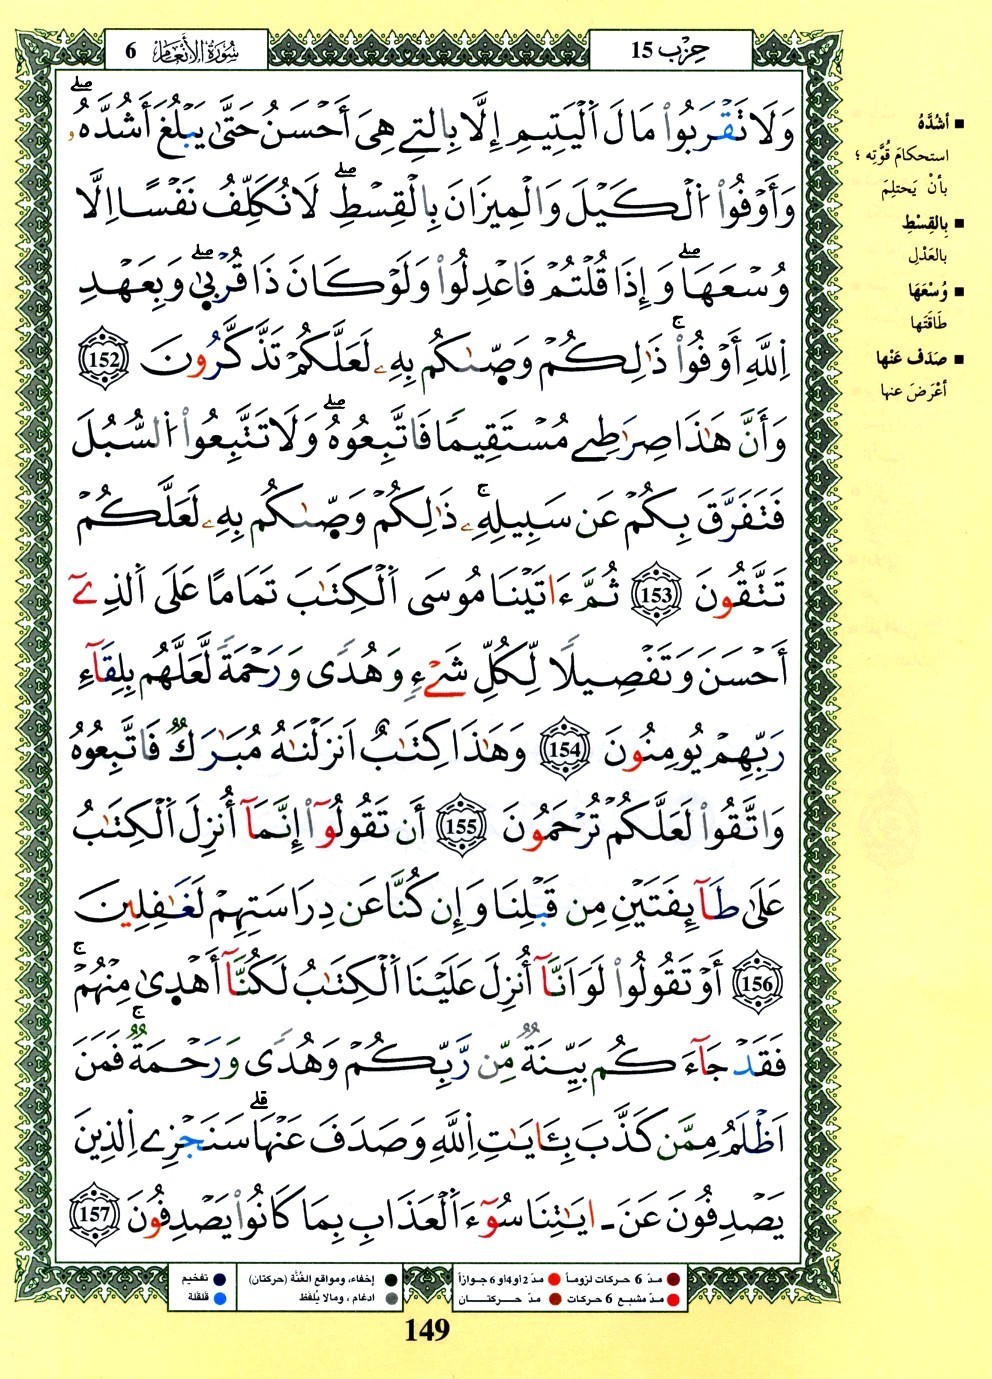 سُورَةُ الأَنْعَام 6
حِزْب 15
وَلَا تَقْرَبُوا۟ مَالَ اَ۬لْيَتِيمِ إِلَّا بِالتِے هِىَ أَحْسَنُ حَتَّىٰ يَبْلُغَ أَشُدَّهُۥۖ
وَأَوْفُوا۟ اُ۬لْكَيْلَ وَالْمِيزَانَ بِالْقِسْطِۖ لَا نُكَلِّفُ نَفْساً اِلَّا
وُسْعَهَاۖ وَإِذَا قُلْتُمْ فَاعْدِلُوا۟ وَلَوْ كَانَ ذَا قُرْب۪ىٰۖ وَبِعَهْدِ
اِ۬للَّهِ أَوْفُوا۟ۚ ذَٰلِكُمْ وَصّ۪ىٰكُم بِهِۦ لَعَلَّكُمْ تَذَّكَّرُونَ 152
وَأَنَّ هَٰذَا صِرَٰطِے مُسْتَقِيماً فَاتَّبِعُوهُۖ وَلَا تَتَّبِعُوا۟ اُ۬لسُّبُلَ
فَتَفَرَّقَ بِكُمْ عَن سَبِيلِهِۦۚ ذَٰلِكُمْ وَصّ۪ىٰكُم بِهِۦ لَعَلَّكُمْ
تَتَّقُونَ 153 ثُمَّ ءَاتَيْنَا مُوسَى اَ۬لْكِتَٰبَ تَمَاماً عَلَى اَ۬لذِےٓ
أَحْسَنَ وَتَفْصِيلاً لِّكُلِّ شَےْءٍ وَهُدىً وَرَحْمَةً لَّعَلَّهُم بِلِقَآءِ
رَبِّهِمْ يُومِنُونَ 154 وَهَٰذَا كِتَٰبٌ اَنزَلْنَٰهُ مُبَٰرَكٌ فَاتَّبِعُوهُ
وَاتَّقُوا۟ لَعَلَّكُمْ تُرْحَمُونَ 155 أَن تَقُولُوٓا۟ إِنَّمَآ أُنزِلَ اَ۬لْكِتَٰبُ
عَلَىٰ طَآئِفَتَيْنِ مِن قَبْلِنَا وَإِن كُنَّا عَن دِرَاسَتِهِمْ لَغَٰفِلِينَ
156 أَوْ تَقُولُوا۟ لَوَ اَنَّآ أُنزِلَ عَلَيْنَا اَ۬لْكِتَٰبُ لَكُنَّآ أَهْد۪ىٰ مِنْهُمْۚ
فَقَدْ جَآءَكُم بَيِّنَةٌ مِّن رَّبِّكُمْ وَهُدىً وَرَحْمَةٌۚ فَمَنَ
اَظْلَمُ مِمَّن كَذَّبَ بِـَٔايَٰتِ اِ۬للَّهِ وَصَدَفَ عَنْهَاۗ سَنَجْزِے اِ۬لذِينَ
يَصْدِفُونَ عَنَ ـ ايَٰتِنَا سُوٓءَ اَ۬لْعَذَابِ بِمَا كَانُوا۟ يَصْدِفُونَ 157
■ أشُدَّهُ
استحكامَ قُوَّتِه ؛
بأنْ يَحتلِمَ
■ بِالقِسْطِ
بالعَدْلِ
■ وُسْعَهَا
طَاقَتَها
■ صَدَفَ عَنْها
أعْرَضَ عنها
● مدّ 6 حركات لزوماً ● مدّ 2 أو 4 أو 6 جوازاً
● مدّ مشبع 6 حركات ● مدّ حركتان
● إخفاء، ومواقع الغُنَّة (حركتان)
● ادغام ، ومالا يُلفَظ
● تفخيم
● قلقلة
149